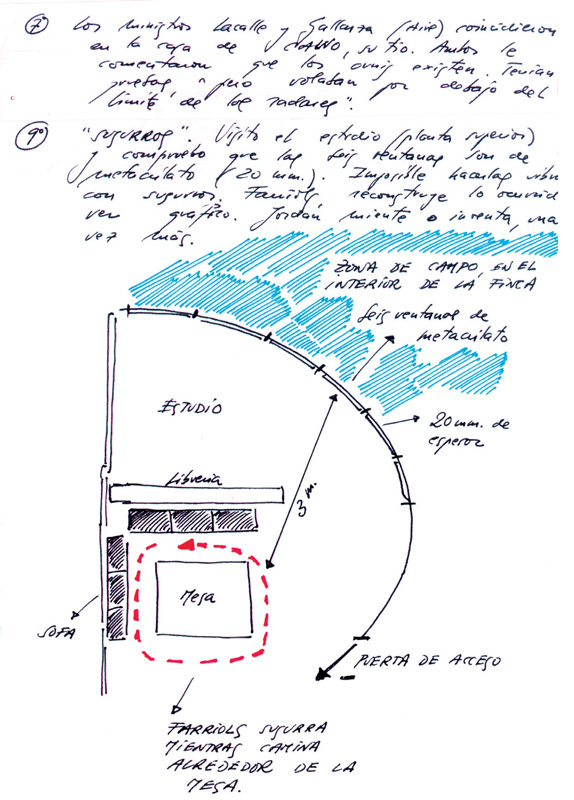 7º Los ministros Lacalle y Gallarza (Aire) coincidieron
en la casa de CALVO, su tío. Ambos le
comentaron que los ovnis existen. Tenían
pruebas "pero volaban por debajo del
límite de los radares".
9º "SUSURROS". Visito el estudio (planta superior)
y compruebo que las seis ventanas son de
metacrilato (20 mm.). Imposible hacerlas vibr
con susurros. Farriols reconstruye lo ocurrid
ver gráfico. Jordán miente o inventa, una
vez más.
ZONA DE CAMPO, EN EL
INTERIOR DE LA FINCA
Seis ventanas de
metacrilato
ESTUDIO
20 mm. de
espesor
Librería
3 m.
Mesa
SOFA
PUERTA DE ACCESO
FARRIOLS SUSURRA
MIENTRAS CAMINA
ALREDEDOR DE LA
MESA.